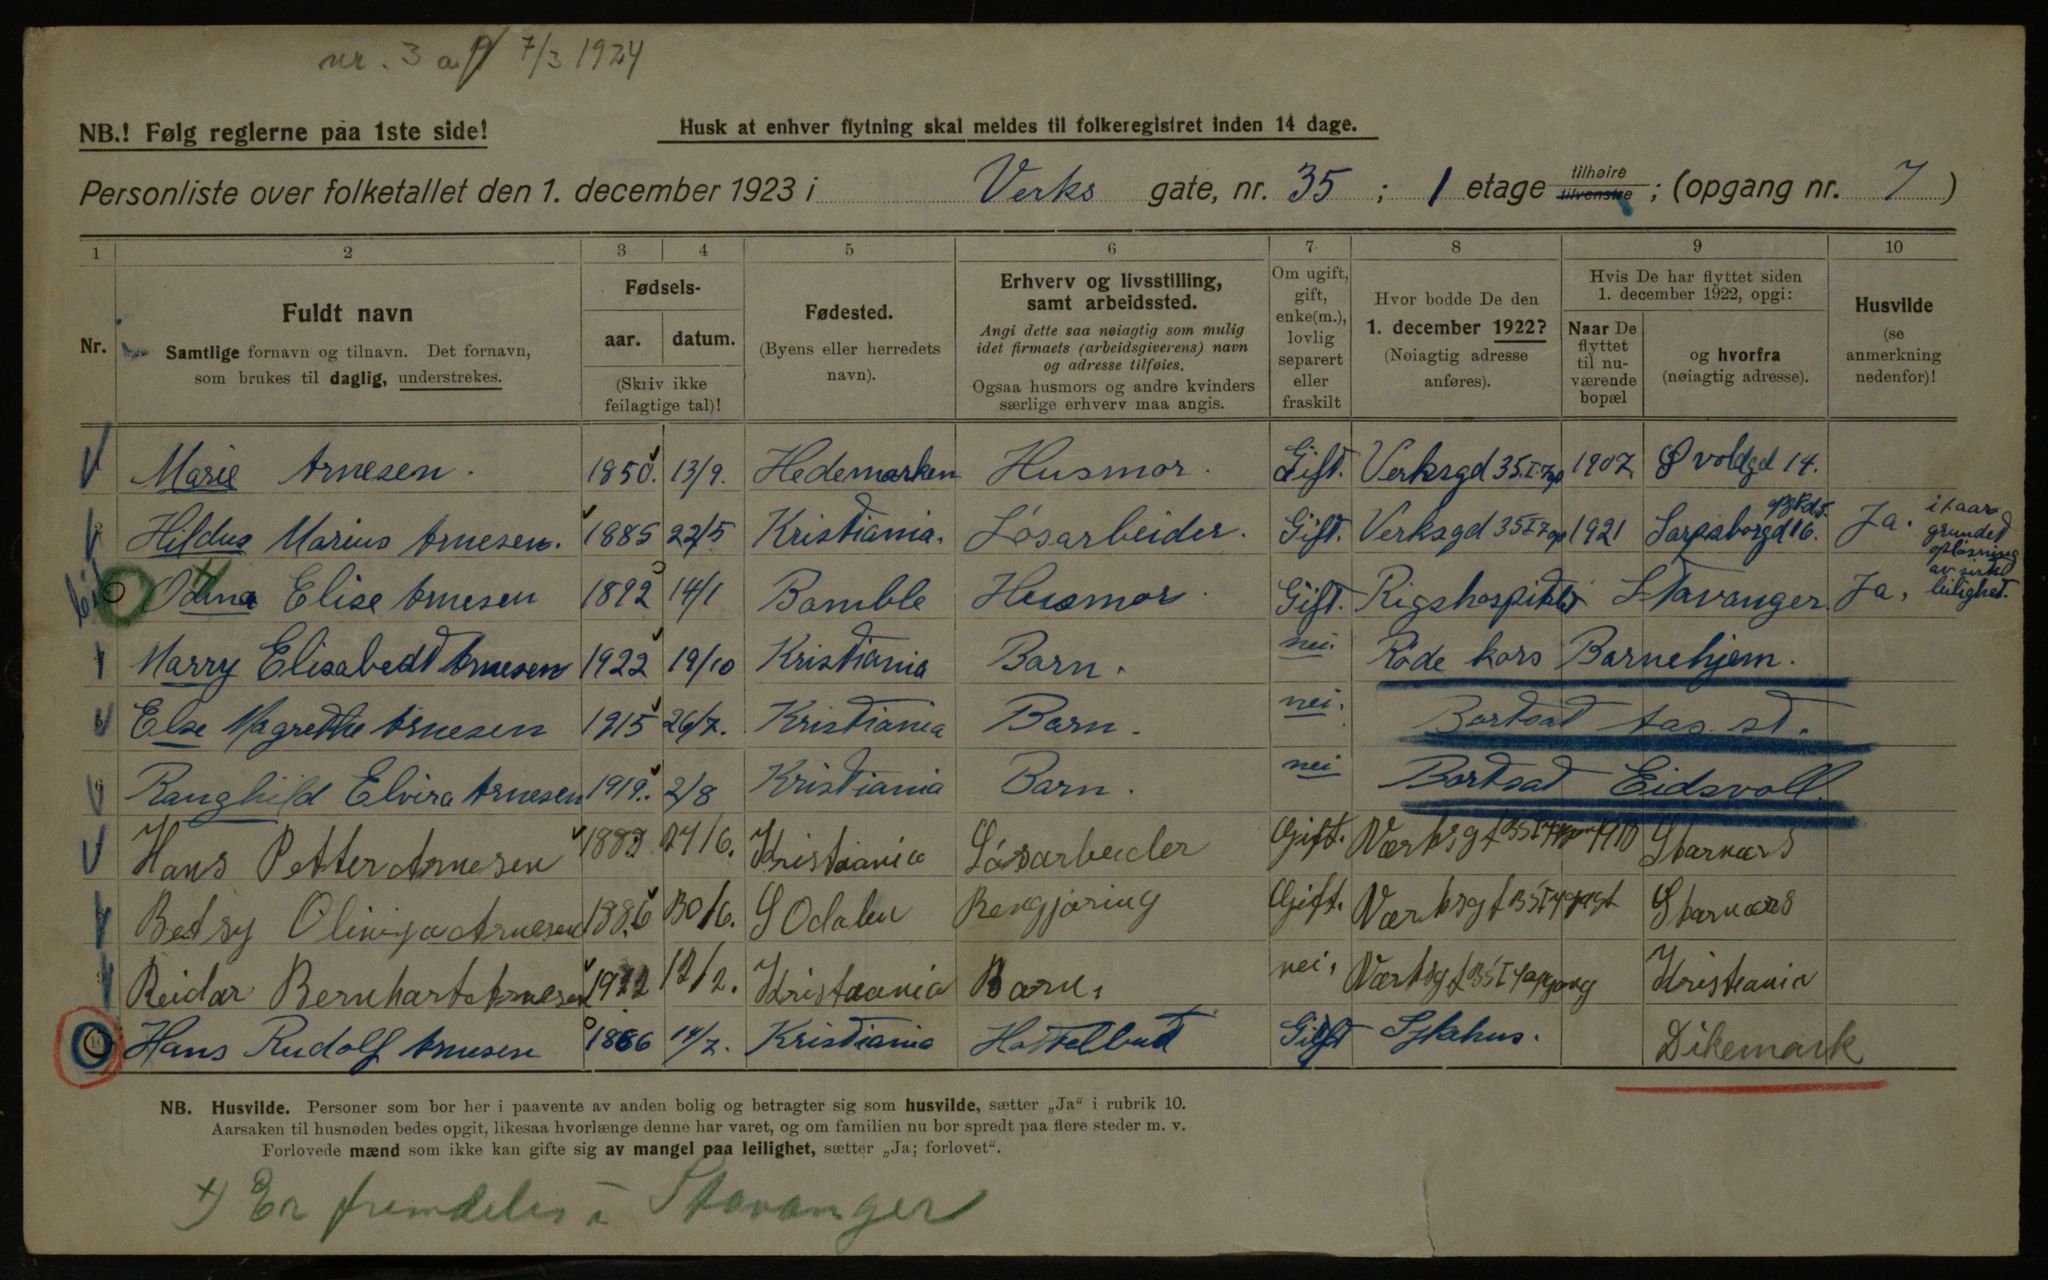 nr. 3 af 7/3 1924
NB.! Følg reglerne paa 1ste side!
Husk at enhver flytning skal meldes til folkeregistret inden 14 dage.
Personliste over folketallet den 1. december 1923 i Verks gate, nr. 35 ; 1 etage tilhøire tilvenstre ; (opgang nr. 7 )
1 2 3 4 5 6 7 8 9 10
Nr.
Fuldt navn
Samtlige fornavn og tilnavn. Det fornavn,
som brukes til daglig, understrekes.
Fødsels-
aar. datum.
(Skriv ikke
feilagtige tal)!
Fødested.
(Byens eller herredets
navn).
Erhverv og livsstilling,
samt arbeidssted.
Angi dette saa nøiagtig som mulig
idet firmaets (arbeidsgiverens) navn
og adresse tilføies.
Ogsaa husmors og andre kvinders
særlige erhverv maa angis.
Om ugift,
gift,
enke(m.),
lovlig
separert
eller
fraskilt
Hvor bodde De den
1. december 1922?
(Nøiagtig adresse
anføres).
Hvis De har flyttet siden
1. december 1922, opgi:
Naar De
flyttet
til nu-
værende
bopæl
og hvorfra
(nøiagtig adresse).
Husvilde
(se
anmerkning
nedenfor)!
Marie Arnesen. 1850. 13/9. Hedemarken Husmor. Gift. Verksgd 35 I 7 op 1907 Ø voldgd 14.
Hildus Marius Arnesen. 1885 22/5 Kristiania. Løsarbeider. Gift. Verksgd 35 I 7 op 1921 Sarpsborgd 16. Ja. i 1 aar
grundet
opløsning
av
leilighet.
Odina Elise Arnesen 1892 14/1 Bamble Husmor. Gift. Rigshospitalet Stavanger. Ja.
Marry Elisabedt Arnesen 1922 19/10 Kristiania Barn. nei. Røde kors Barnehjem.
Else Magrethe Arnesen 1915 26/7. Kristiania Barn. nei. Bortsat Aas. st.
Ranghild Elvira Arnesen 1919. 2/8 Kristiania Barn. nei Bortsat Eidsvoll.
Hans Petter Arnesen 1883 24/6. Kristiania Løsarbeider Gift. Værksgt 35 I
Betsy Olinya Arnesen 1886 30/6. S Odalen Rengjøring Gift. Værksgt 35 I
Reidar Bernhart Arnesen 1922 12/2. Kristiania Barn. nei. Værksgt 35 I 7 opgang Kristiania
10 Hans Rudolf Arnesen 1886 14/7. Kristiania Hottelbud Gift Sykehus. Dikemark
NB. Husvilde. Personer som bor her i paavente av anden bolig og betragter sig som husvilde, sætter „Ja“ i rubrik 10.
Aarsaken til husnøden bedes opgit, likesaa hvorlænge denne har varet, og om familien nu bor spredt paa flere steder m. v.
Forlovede mænd som ikke kan gifte sig av mangel paa leilighet, sætter „Ja; forlovet“.
+) Er fremdeles i Stavanger